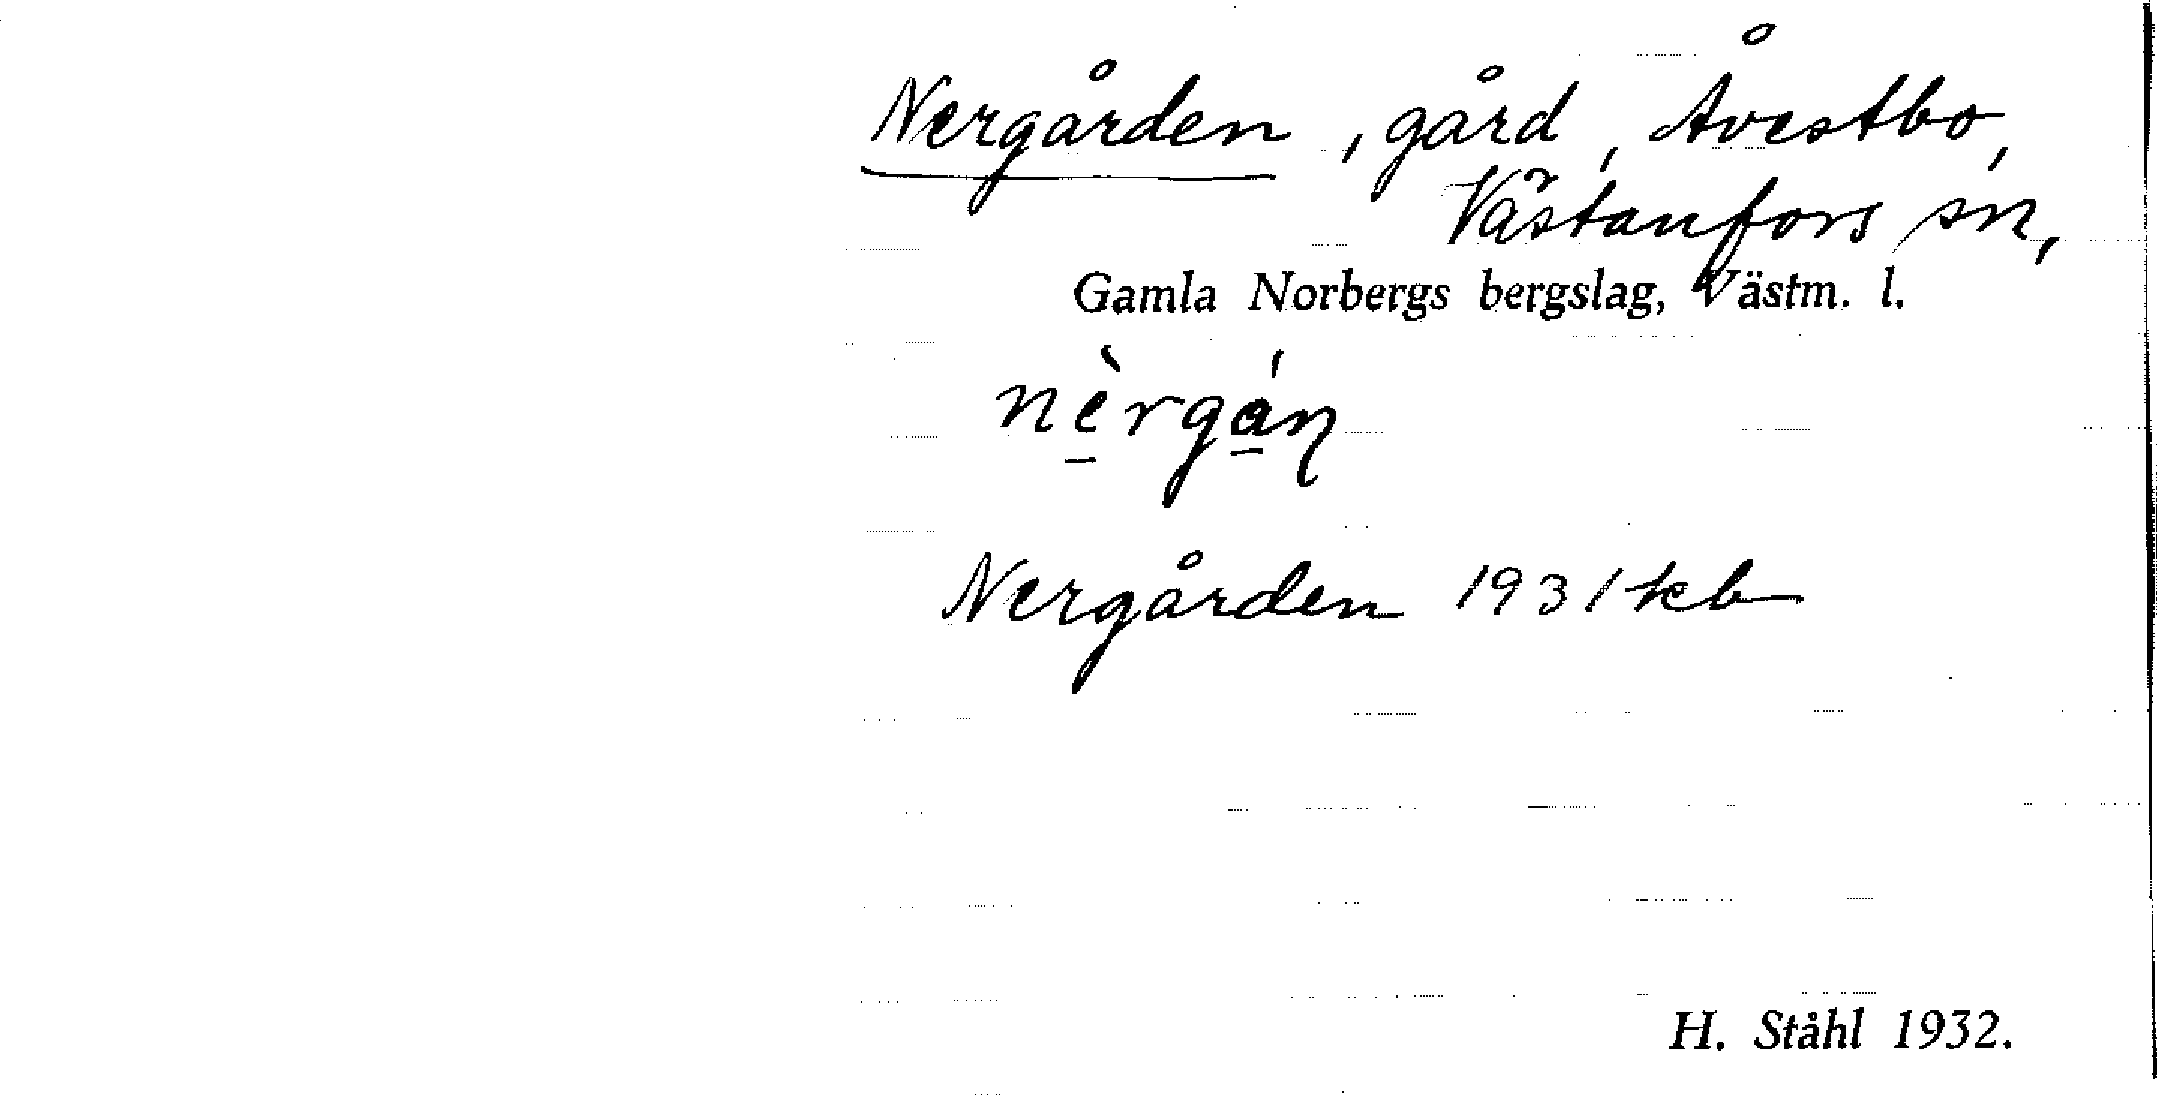 Nergården, gård, Åvestbo,
Västanfors sn,
Gamla Norbergs bergslag, Västm. l.
nè̱rgá̱ṇ
Nergården 1931 kb
H. Ståhl 1932.